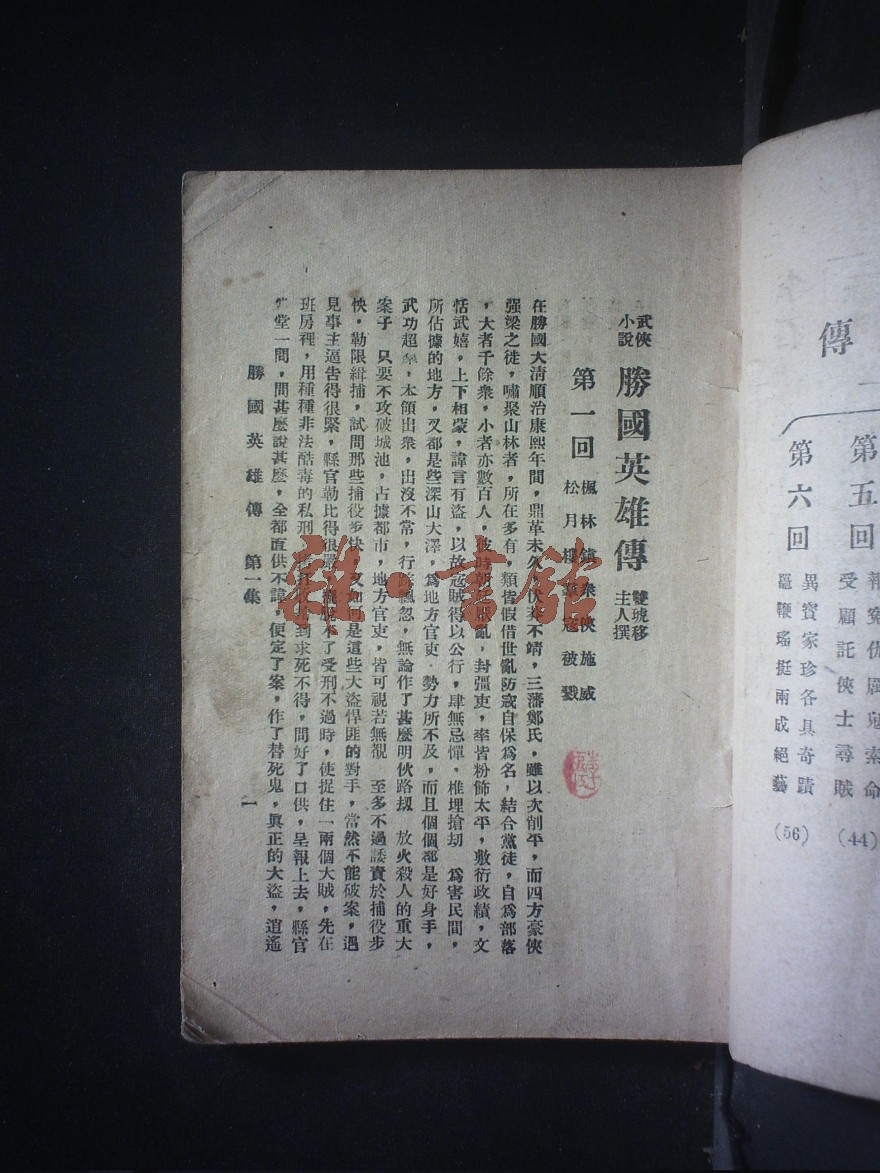 傳
第五回
受顧託俠士尋賊
(44)
第六回
異寶家珍各具奇蹟
鞭瑤挺兩成絕藝
(56)
武俠小說
勝國英雄傳
雙琥移主人撰
第一回
楓林鎮衆俠施威
松月樓羣寇被戮
在勝國大淸順治康熙年間,鼎革未久,伏莽不靖,三藩鄭氏,雖以次削平,而四方豪俠
强梁之徒,嘯聚山林者,所在多有,類皆假借世亂防寇自保爲名,結合黨徒,自爲部落
,大者千餘衆,小者亦數百人,彼時朝廷厭亂,封疆吏,率皆粉飾太平,敷衍政績,文
恬武嬉,上下相蒙,諱言有盜,以故寇賊得以公行,肆無忌憚,椎埋搶劫 爲害民間,
所佔據的地方,又都是些深山大澤,爲地方官吏 勢力所不及,而且個個都是好身手,
武功超羣,本領出衆,出沒不常,行踪飄忽,無論作了甚麼明伙路刼 放火殺人的重大
案子 只要不攻破城池,占據都市,地方官吏,皆可視若無覩 至多不過諉責於捕役步
快,勒限緝捕,試問那些捕役步快,又如何是這些大盜悍匪的對手,當然不能破案,遇
見事主逼吿得很緊,縣官勒比得很嚴,脫不了受刑不過時,使捉住一兩個大賊,先在
班房裡,用種種非法酷毒的私刑,收拾到求死不得,問好了口供,呈報上去,縣官
堂一問,問甚麼說甚麼,全都直供不諱,便定了案,作了替死鬼,眞正的大盜,逍遙
勝國英雄傳 第一集
一
雜·書館